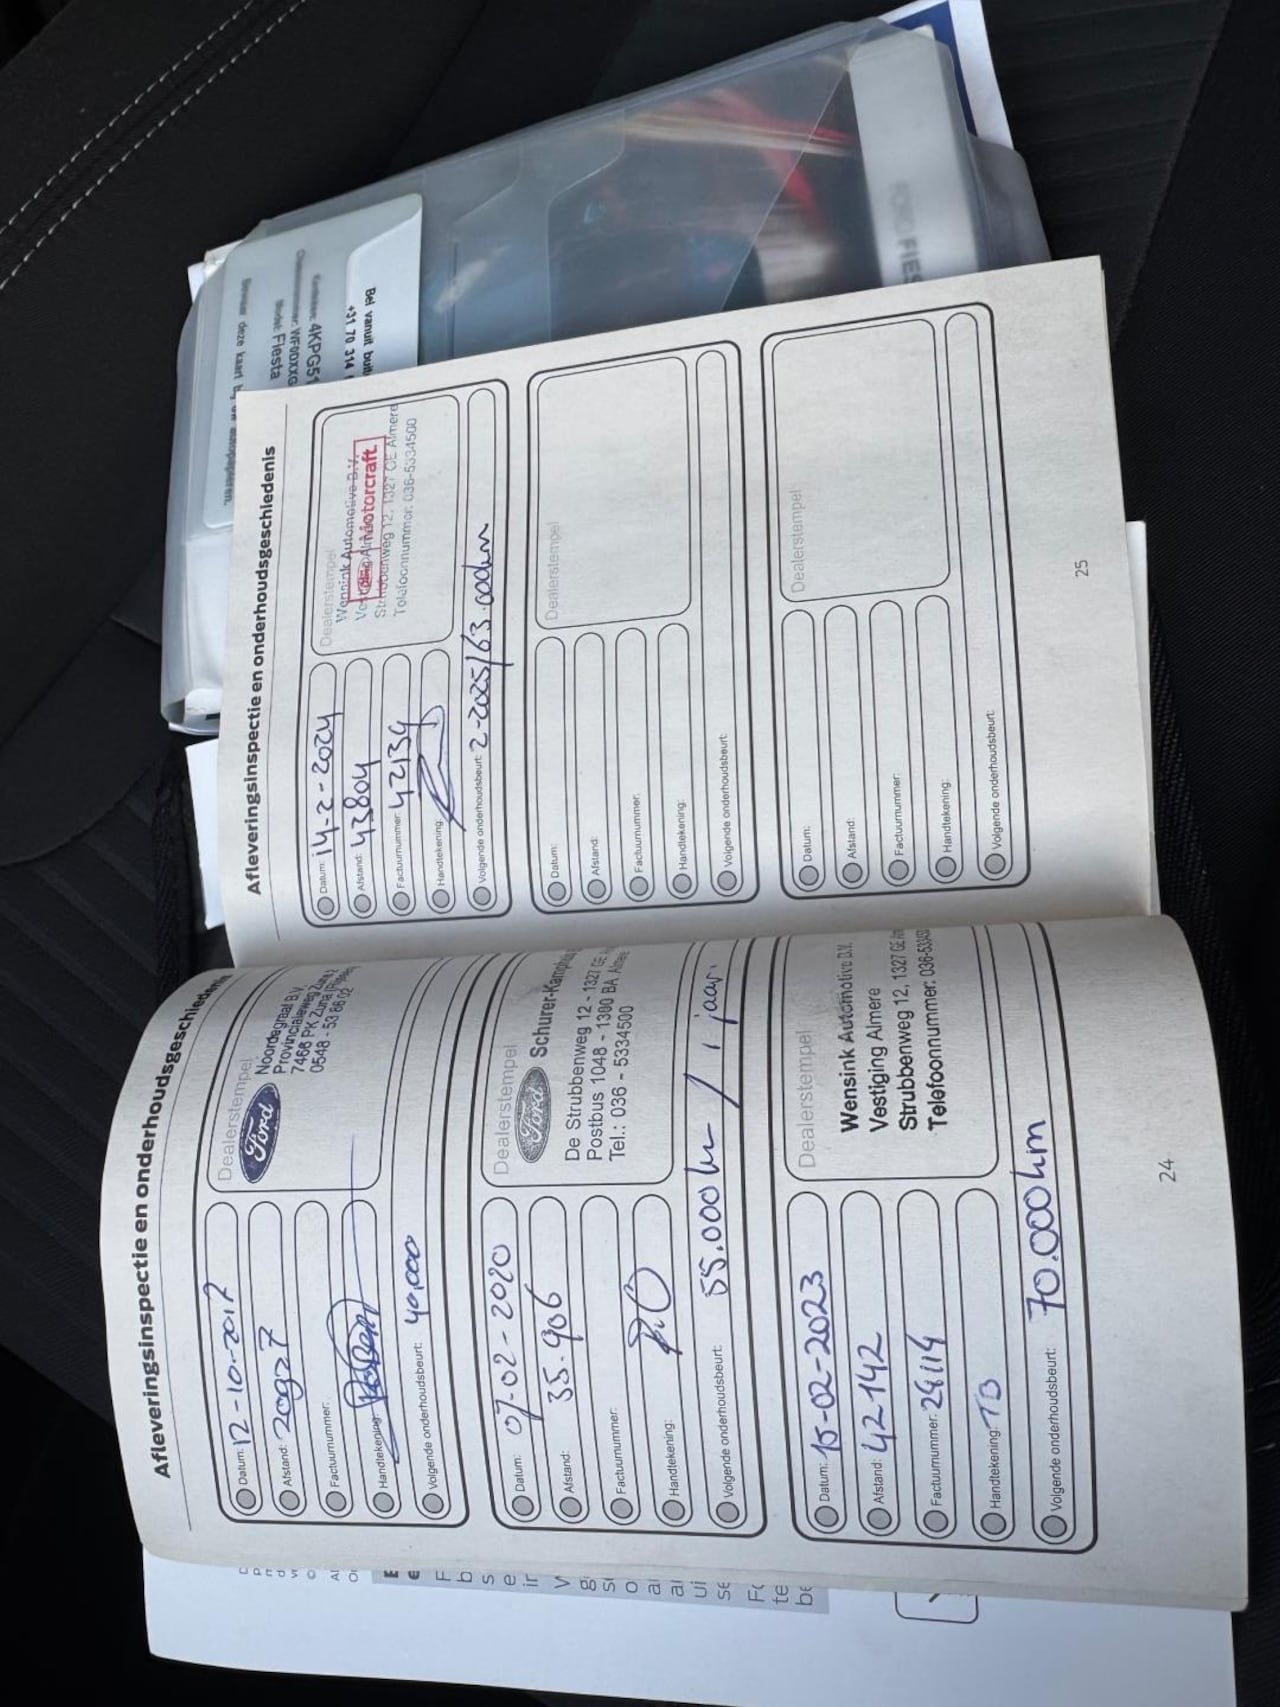 Afleveringsinspectie en onderhoudsgeschiedenis
Datum: 12-10-2017
Afstand: 20927
Factuurnummer:
Handtekening:
Volgende onderhoudsbeurt: 40,000
Dealerstempel
Ford
Noordegraaf B.V.
Provincialeweg Zuna 2
7466 PK Zuna (Rijssen)
0548 - 53 86 02
Datum: 07-02-2020
Afstand: 35.906
Factuurnummer:
Handtekening:
Volgende onderhoudsbeurt: 55.000 km / 1 jaar.
Dealerstempel
Ford
Schurer-Kamphuis
De Strubbenweg 12 - 1327 GE
Postbus 1048 - 1300 BA Almere
Tel.: 036 - 5334500
Datum: 15-02-2023
Afstand: 42-142
Factuurnummer: 28114
Handtekening: TB
Volgende onderhoudsbeurt: 70.000km
Dealerstempel
Wensink Automotive B.V.
Vestiging Almere
Strubbenweg 12, 1327 GE
Telefoonnummer: 036-533
24
Afleveringsinspectie en onderhoudsgeschiedenis
Datum: 14-2-2024
Afstand: 43804
Factuurnummer: 42134
Handtekening:
Volgende onderhoudsbeurt: 2-2025/63.000km
Dealerstempel
Wensink Automotive B.V.
Motorcraft
Strubbenweg 12, 1327 GE Almere
Telefoonnummer: 036-5334500
Datum:
Afstand:
Factuurnummer:
Handtekening:
Volgende onderhoudsbeurt:
Dealerstempel
Datum:
Afstand:
Factuurnummer:
Handtekening:
Volgende onderhoudsbeurt:
Dealerstempel
25
Bel vanuit
+31 70 314
Kenteken: 4KPG51
Chassisnummer: WF0DXXG
Model: Fiesta
Bewaar deze kaart bij uw autopapieren.
FORD FIES